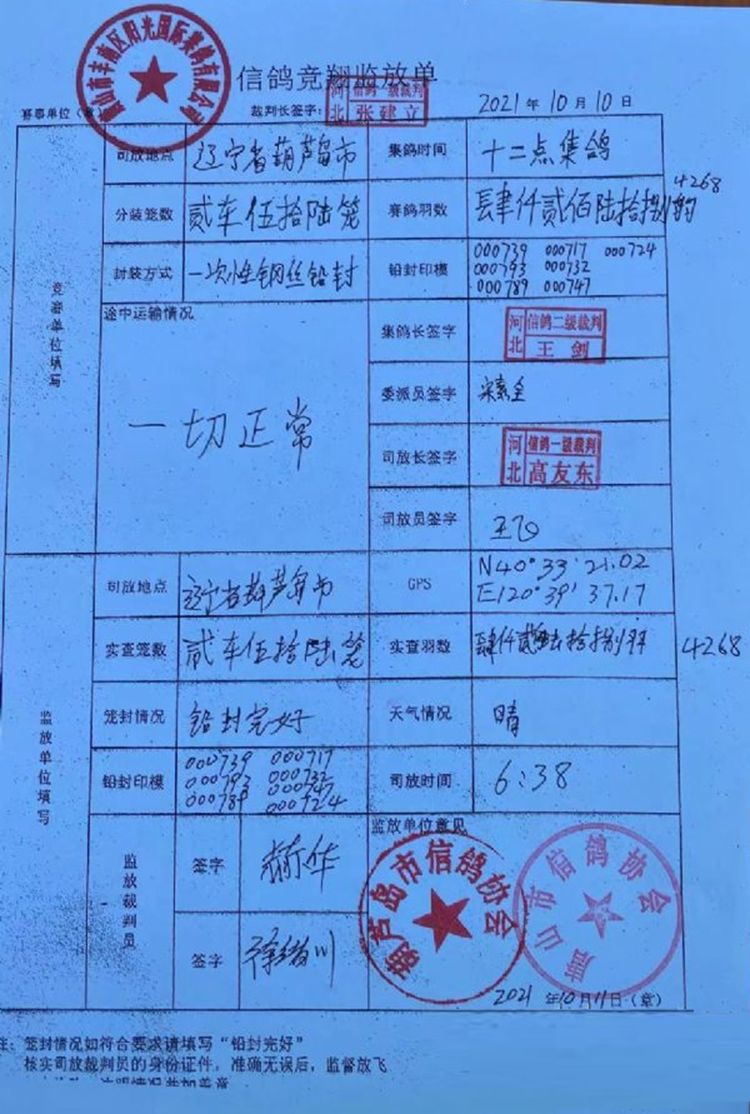 唐山市丰南区阳光国际赛鸽有限公司
信鸽竞翔监放单
赛事单位（章）
裁判长签字：
河北 信鸽一级裁判 张建立
2021年10月10日
赛鸽单位填写
司放地点 辽宁省葫芦岛市 集鸽时间 十二点集鸽
分装笼数 贰车伍拾陆笼 赛鸽羽数 肆仟贰佰陆拾捌羽 4268
封装方式 一次性钢丝铅封 铅封印模 000739 000717 000724
000793 000732
000789 000747
途中运输情况
一切正常
集鸽长签字 河北 信鸽二级裁判 王剑
委派员签字
司放长签字 河北 信鸽一级裁判 高友东
司放员签字 王飞
监放单位填写
司放地点 辽宁省葫芦岛市 GPS N40°33′21.02
E120°39′37.17
实查笼数 贰车伍拾陆笼 实查羽数 肆仟贰佰陆拾捌羽 4268
笼封情况 铅封完好 天气情况 晴
铅封印模 000739 000717
000793 000732
000747
000789 000724
司放时间 6:38
监放裁判员
签字
签字
监放单位意见
葫芦岛市信鸽协会
唐山市信鸽协会
2021年10月11日（章）
注：笼封情况如符合要求请填写“铅封完好”
核实司放裁判员的身份证件，准确无误后，监督放飞